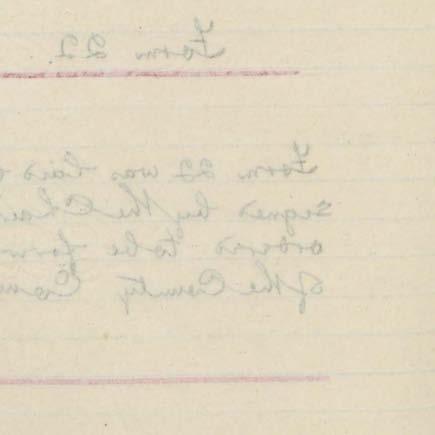 Form 22.
Form 22 was laid
signed by the Chai
ordered to be forw
of the County Com